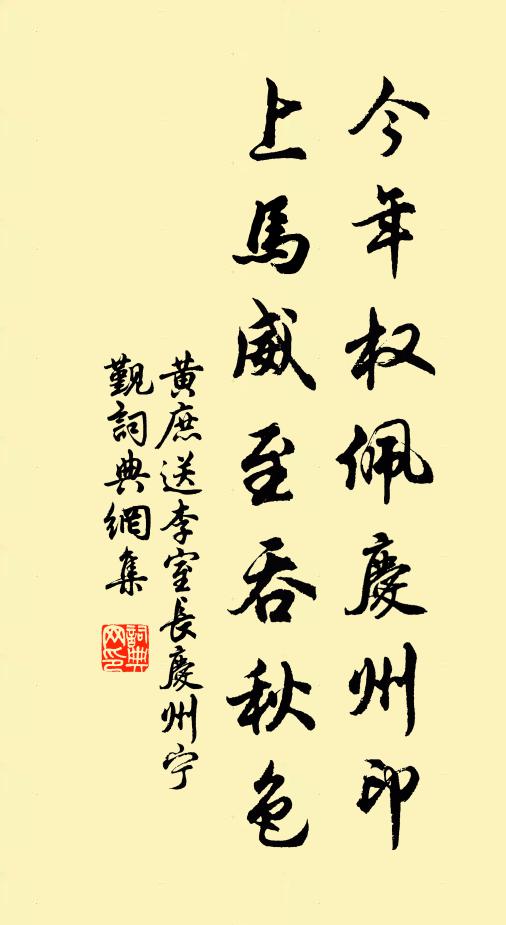 今年权佩慶州印
上馬威至吞秋色
黄庶送李室長慶州宁
覲詞典網集
詞典
网印